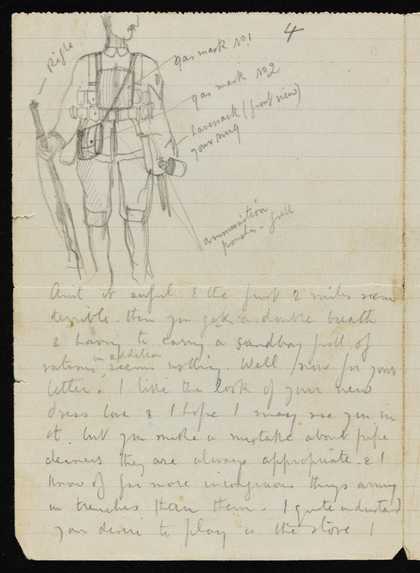 4
Rifle
gas mask No 1
gas mask No 2
haversack (front view)
your mug
ammunition
pouches - full
Aint it awful & the first 2 miles seem
terrible. then you get a double breath
& having to carry a sandbag full of
rations in addition seems nothing. Well now for your
letter. I like the look of your new
dress love & I hope I may see you in
it. but you make a mistake about pipe
cleaners they are always appropriate. & I
know of far more incongruous things arriving
in trenches than them. I quite understand
your desire to play in the store I